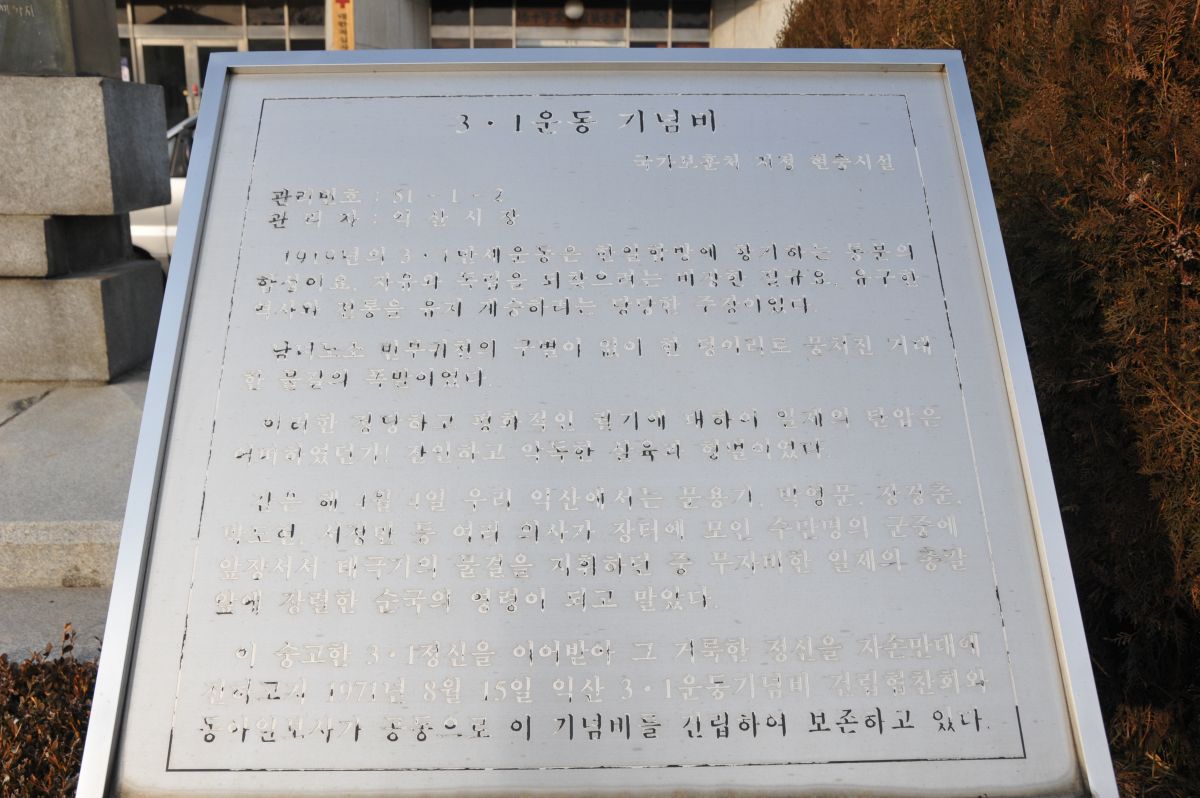 3·1운동 기념비
국가보훈처 지정 현충시설
관리번호 : 51 - 1 - 2
관 리 자 : 익 산 시 장
1919년의 3·1만세운동은 한일합방에 항거하는 통분의
함성이요, 자유와 독립을 되찾으려는 비장한 절규요, 유구한
역사와 전통을 유지 계승하려는 당당한 주장이었다.
남녀노소 빈부귀천의 구별이 없이 한 덩어리로 뭉쳐진 거대
한 불길의 폭발이었다.
이러한 정당하고 평화적인 궐기에 대하여 일제의 탄압은
어떠하였던가! 잔인하고 악독한 살육과 형벌이었다.
같은 해 4월 4일 우리 익산에서는 문용기, 박영문, 장경춘,
박도현, 서정만 등 여러 의사가 장터에 모인 수만명의 군중에
앞장서서 태국기의 물결을 지휘하던 중 무자비한 일제의 총칼
앞에 장렬한 순국의 영령이 되고 말았다.
이 숭고한 3·1정신을 이어받아 그 거룩한 정신을 자손만대에
전하고자 1971년 8월 15일 익산 3·1운동기념비 건립협찬회와
동아일보사가 공동으로 이 기념비를 건립하여 보존하고 있다.